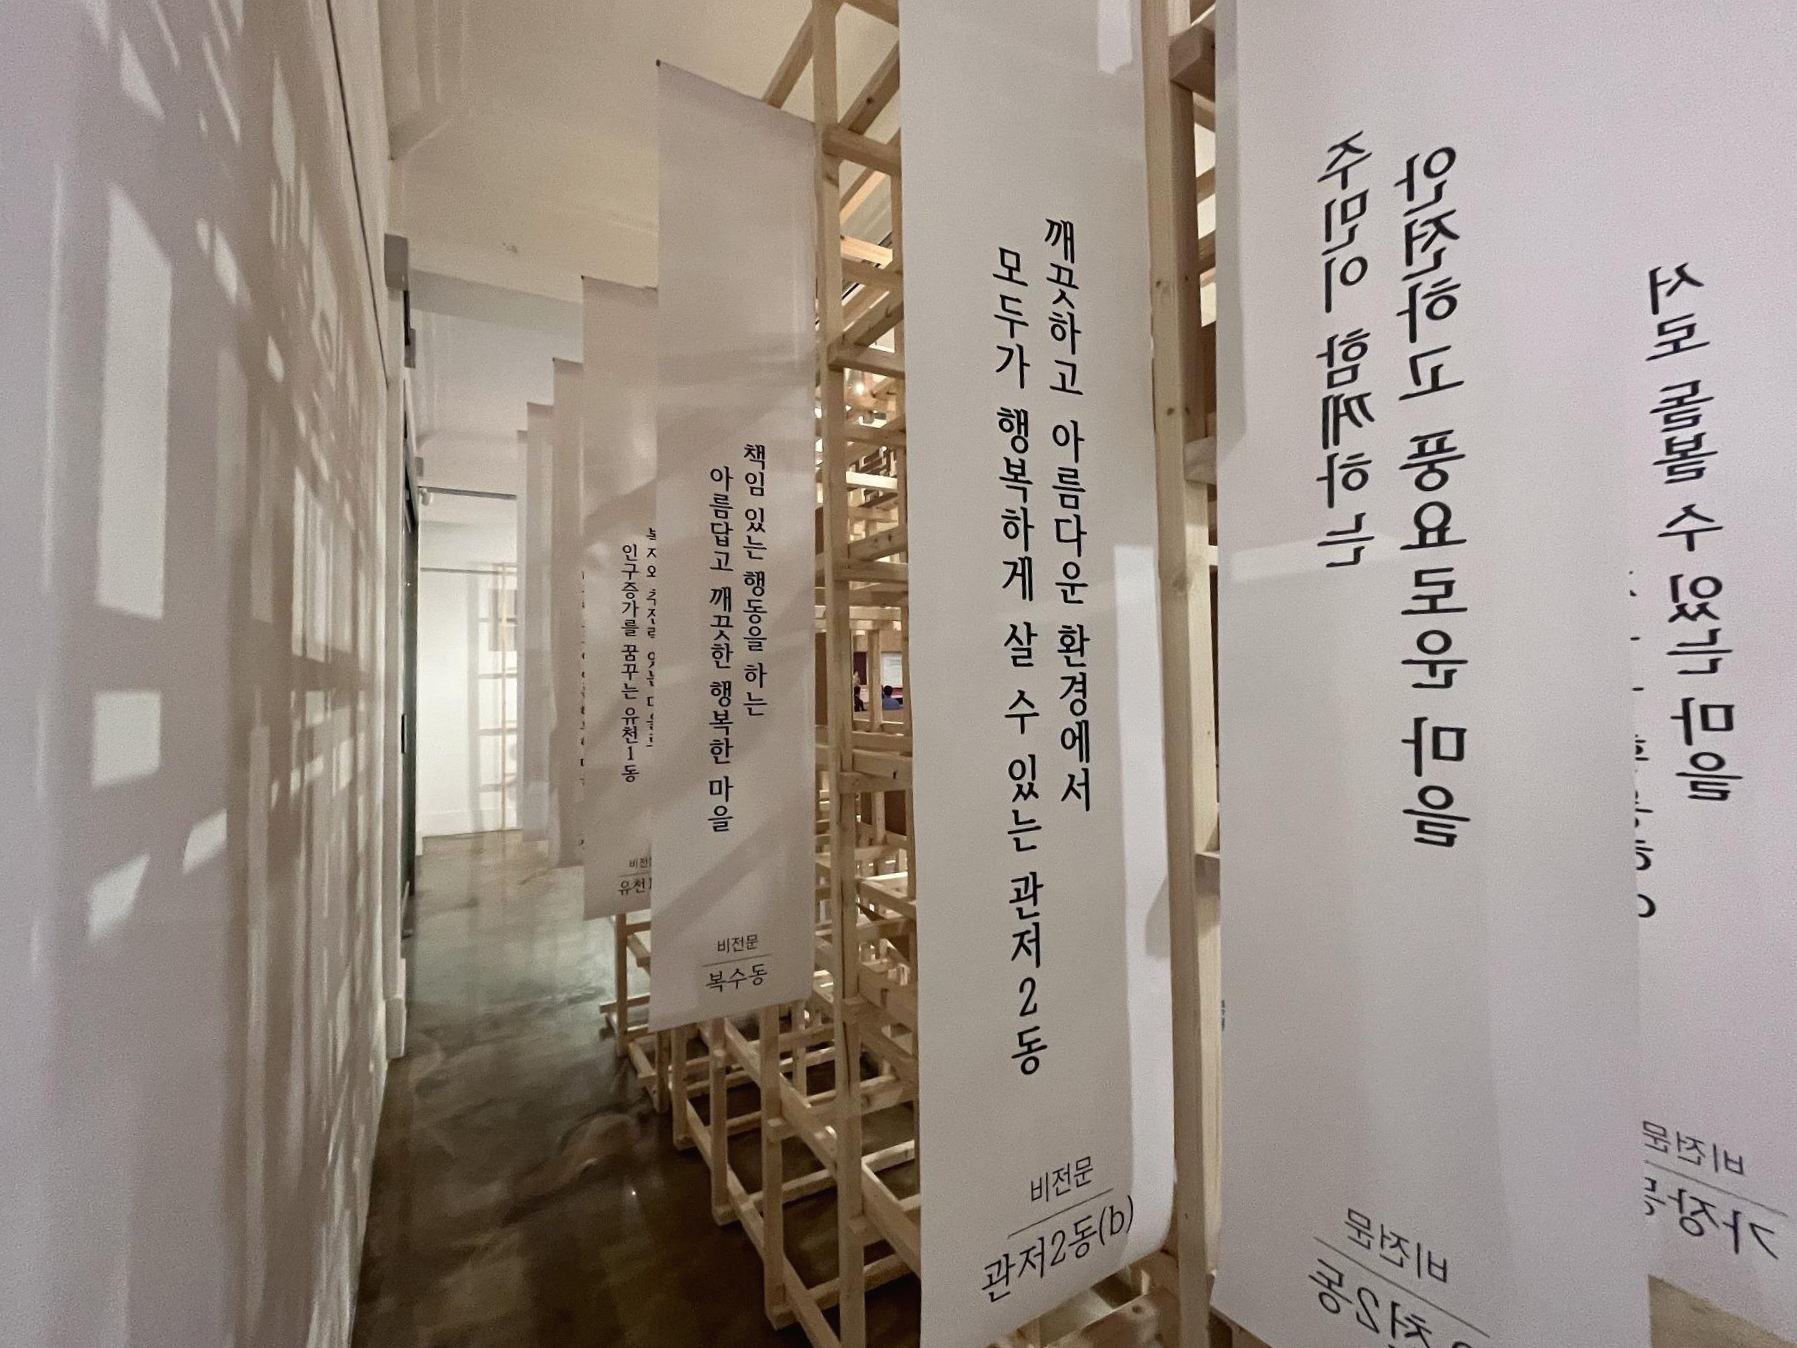 인구증가를 꿈꾸는 유천1동
비전문
책임 있는 행동을 하는
아름답고 깨끗한 행복한 마을
비전문
복수동
깨끗하고 아름다운 환경에서
모두가 행복하게 살 수 있는 관저2동
비전문
관저2동(b)
주민이 함께하는
안전하고 풍요로운 마을
비전문
서로 돌봄 수 있는 마을
비전문